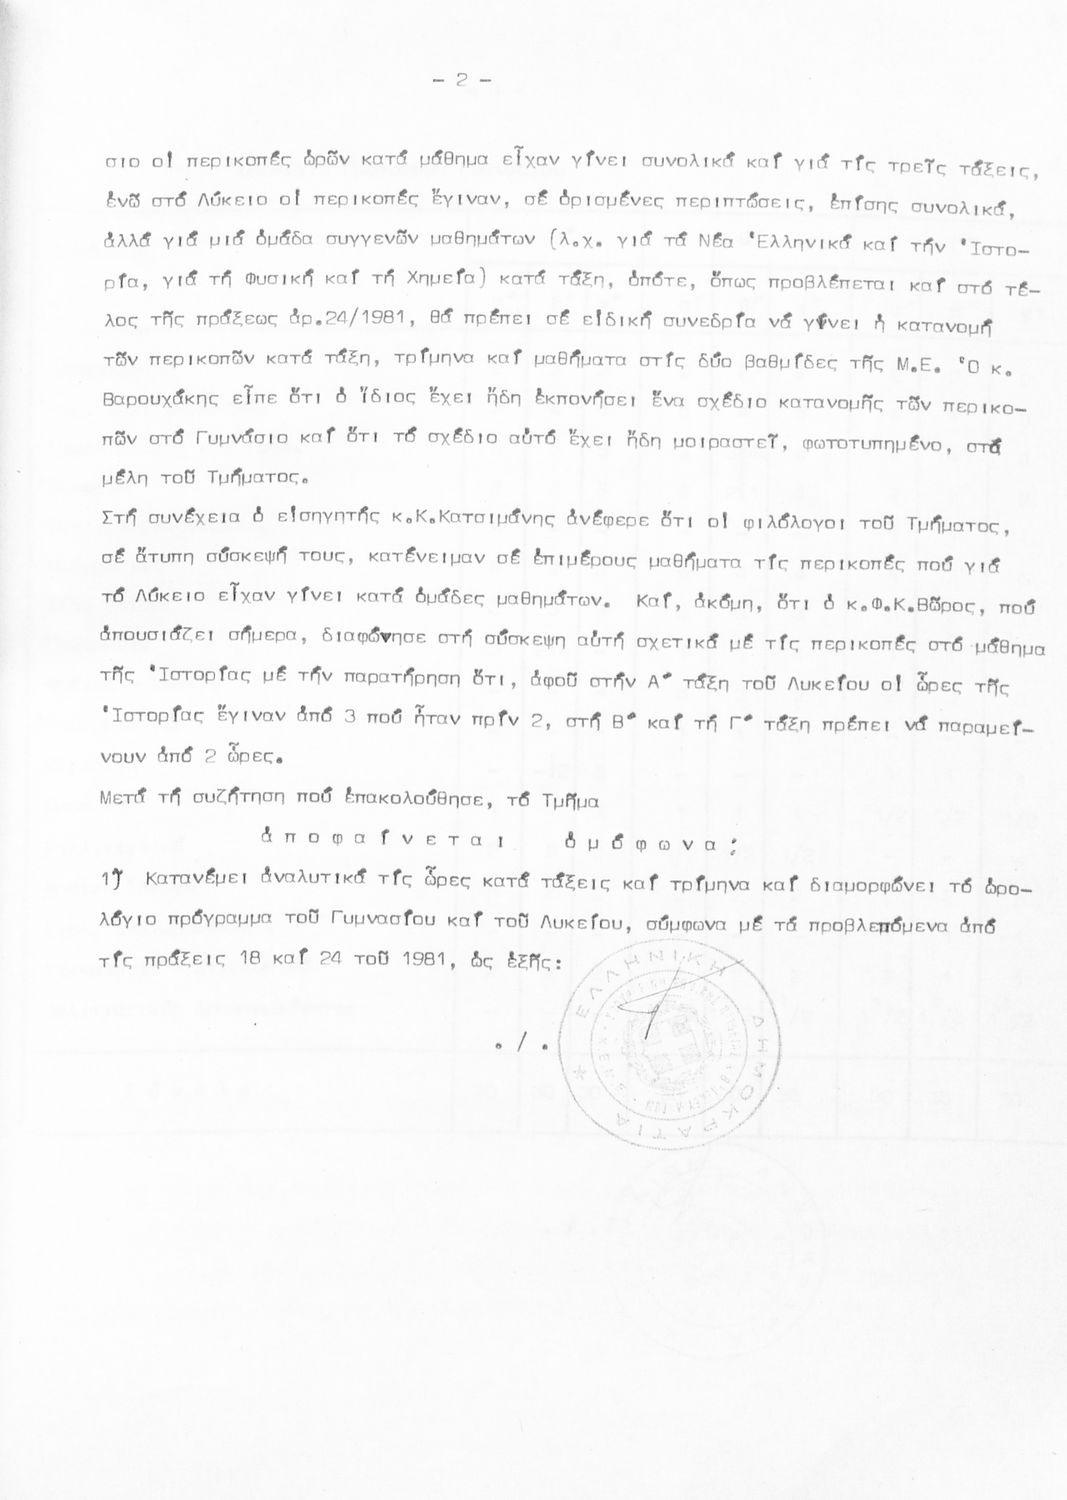 - 2 -
σιο οἱ περικοπές ὡρῶν κατά μάθημα εἶχαν γίνει συνολικά καί γιά τίς τρεῖς τάξεις,
ἐνῶ στό Λύκειο οἱ περικοπές ἔγιναν, σέ ὁρισμένες περιπτώσεις, ἐπίσης συνολικά,
ἀλλά γιά μιά ὁμάδα συγγενῶν μαθημάτων (λ.χ. γιά τά Νέα Ἑλληνικά καί τήν Ἱστο-
ρία, γιά τή Φυσική καί τή Χημεία) κατά τάξη, ὁπότε, ὅπως προβλέπεται καί στό τέ-
λος τῆς πράξεως ἀρ.24/1981, θά πρέπει σέ εἰδική συνεδρία νά γίνει ἡ κατανομή
τῶν περικοπῶν κατά τάξη, τρίμηνα καί μαθήματα στίς δύο βαθμίδες τῆς Μ.Ε. Ὁ κ.
Βαρουχάκης εἶπε ὅτι ὁ ἴδιος ἔχει ἤδη ἐκπονήσει ἕνα σχέδιο κατανομῆς τῶν περικο-
πῶν στό Γυμνάσιο καί ὅτι τό σχέδιο αὐτό ἔχει ἤδη μοιραστεῖ, φωτοτυπημένο, στά
μέλη τοῦ Τμήματος.
Στή συνέχεια ὁ εἰσηγητής κ.Κ.Κατσιμάνης ἀνέφερε ὅτι οἱ φιλόλογοι τοῦ Τμήματος,
σέ ἄτυπη σύσκεψή τους, κατένειμαν σέ ἐπιμέρους μαθήματα τίς περικοπές πού γιά
τό Λύκειο εἶχαν γίνει κατά ὁμάδες μαθημάτων. Καί, ἀκόμη, ὅτι ὁ κ.Φ.Κ.Βῶρος, πού
ἀπουσιάζει σήμερα, διαφώνησε στή σύσκεψη αὐτή σχετικά μέ τίς περικοπές στό μάθημα
τῆς Ἱστορίας μέ τήν παρατήρηση ὅτι, ἀφοῦ στήν Α΄ τάξη τοῦ Λυκείου οἱ ὧρες τῆς
Ἱστορίας ἔγιναν ἀπό 3 πού ἦταν πρίν 2, στή Β΄ καί τή Γ΄ τάξη πρέπει νά παραμεί-
νουν ἀπό 2 ὧρες.
Μετά τή συζήτηση πού ἐπακολούθησε, τό Τμῆμα
ἀ π ο φ α ί ν ε τ α ι ὁ μ ό φ ω ν α :
1) Κατανέμει ἀναλυτικά τίς ὧρες κατά τάξεις καί τρίμηνα καί διαμορφώνει τό ὡρο-
λόγιο πρόγραμμα τοῦ Γυμνασίου καί τοῦ Λυκείου, σύμφωνα μέ τά προβλεπόμενα ἀπό
τίς πράξεις 18 καί 24 τοῦ 1981, ὡς ἑξῆς:
./.
ΕΛΛΗΝΙΚΗ ΔΗΜΟΚΡΑΤΙΑ